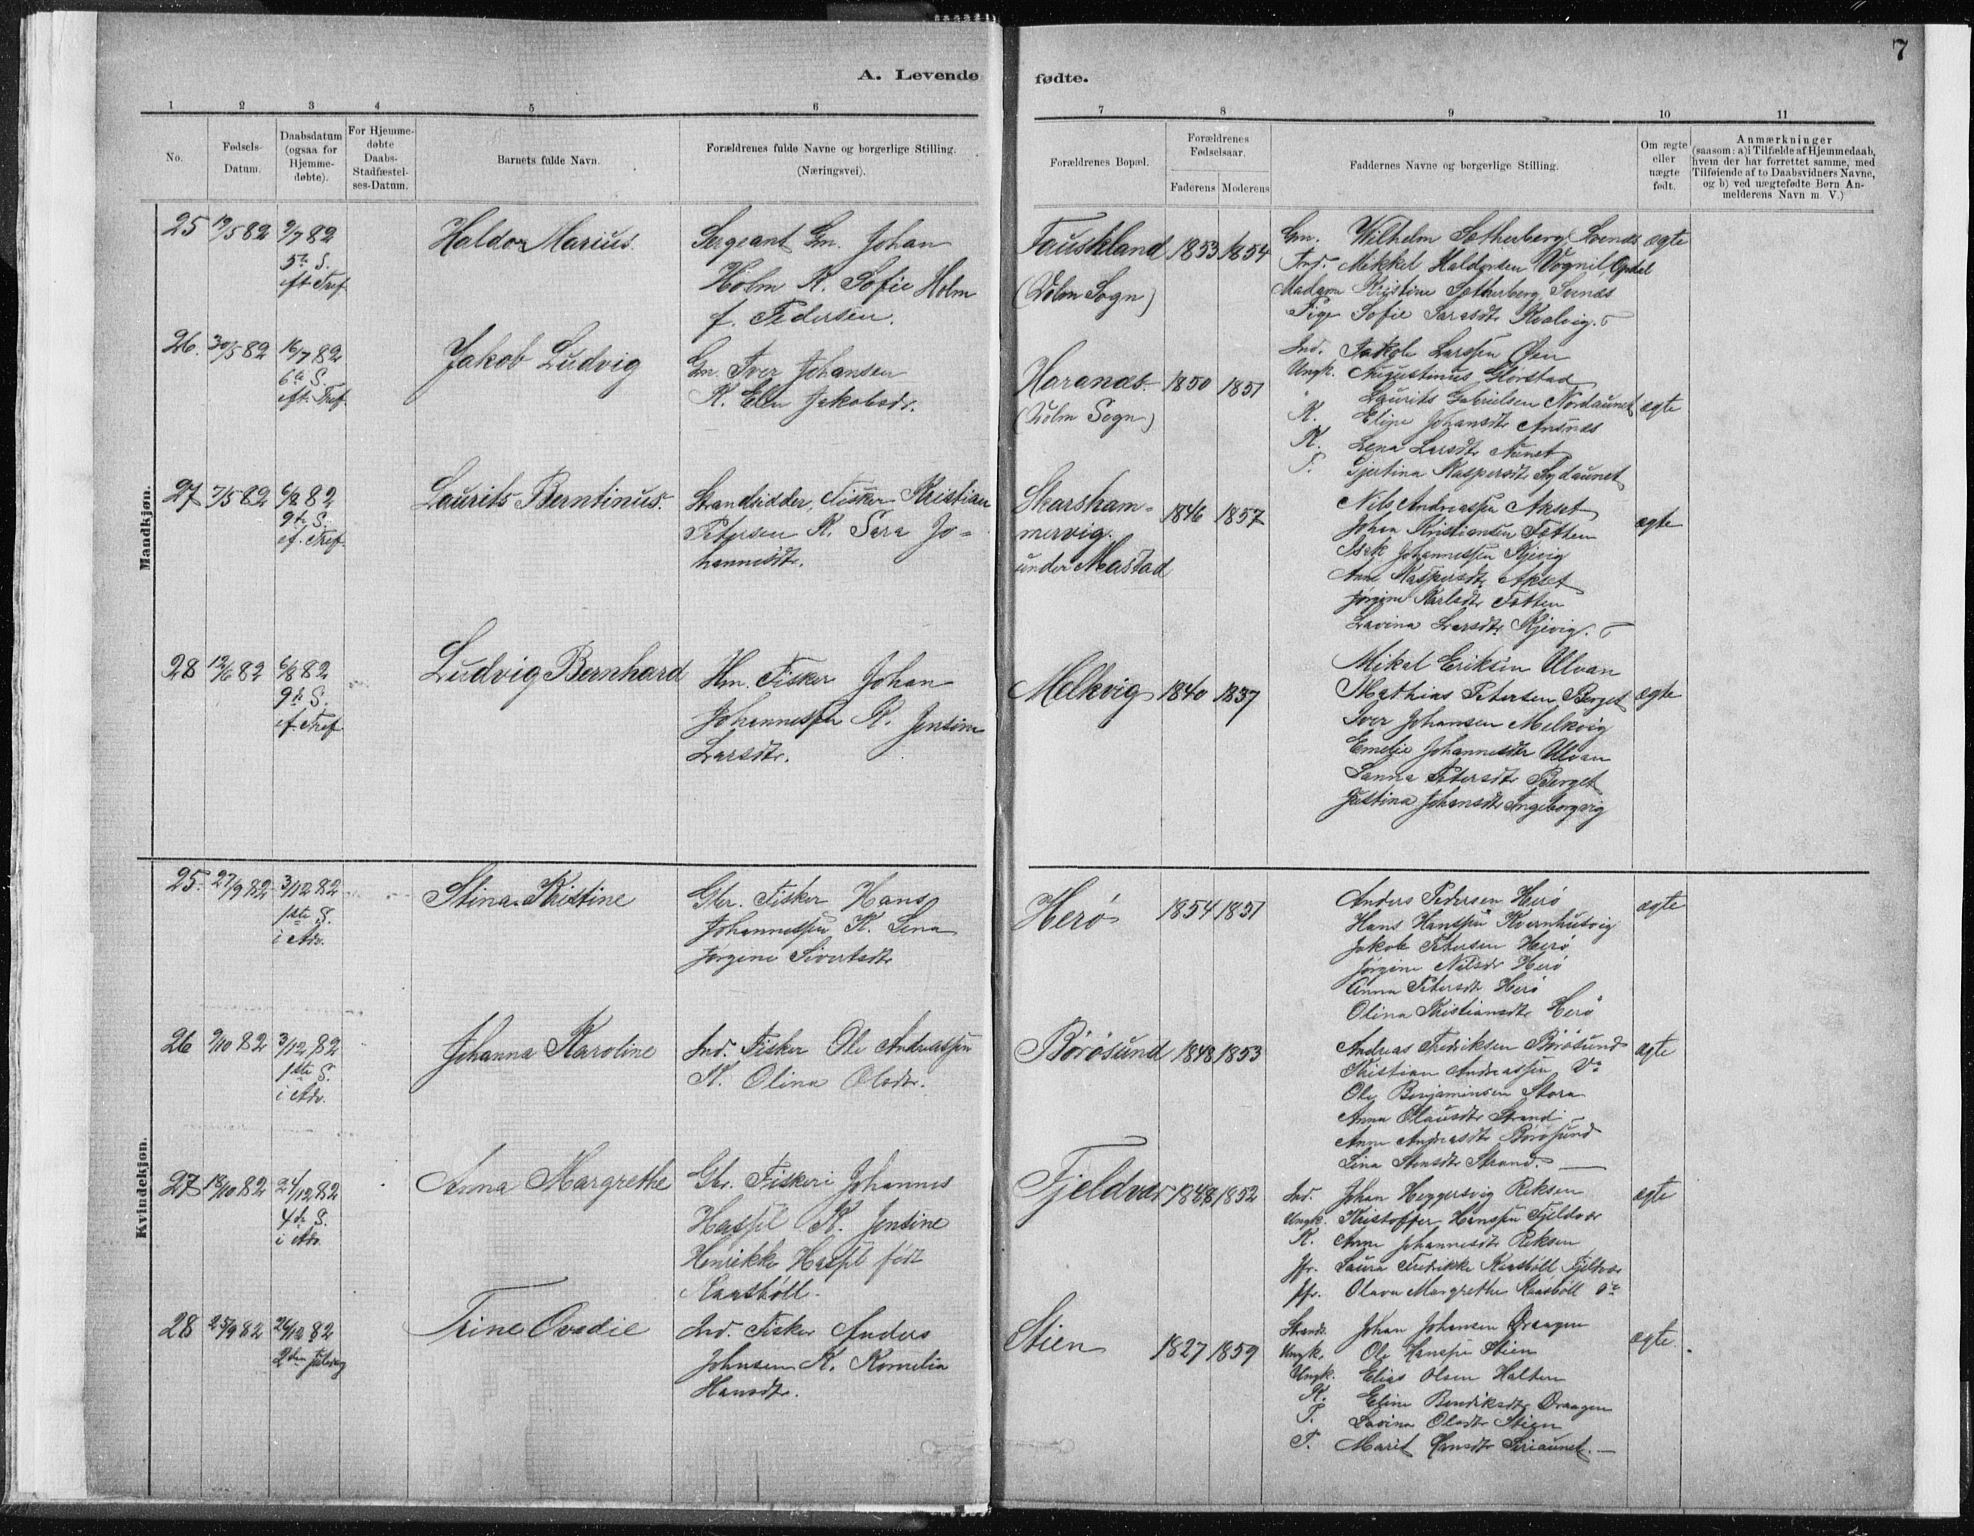 7
A. Levende fødte.
1 2 3 4 5 6 7 8 9 10 11
No.
Fødsels-
Datum.
Daabsdatum
(ogsaa for
Hjemme-
døbte).
For Hjemme-
døbte
Daabs-
Stadfæstel-
ses-Datum.
Barnets fulde Navn.
Forældrenes fulde Navne og borgerlige Stilling.
(Næringsvei).
Forældrenes Bopæl.
Forældrenes
Fødselsaar.
Faderens Moderens
Faddernes Navne og borgerlige Stilling.
Om ægte
eller
uægte
født.
Anmærkninger
(saasom: a) i Tilfælde af Hjemmedaab,
hvem der har forrettet samme, med
Tilføiende af to Daabsvidners Navne,
og b) ved uægtefødte Børn An-
melderens Navn m. V.)
Mandkjøn.
25 19/5 82 9/7 82
5te S.
eft. Tref.
Haldor Marius.
Sergeant Gm. Johan
Holm K. Sofie Holm
f. Pedersen.
Fauskland
(Holm Sogn)
1853 1854
Gm. Wilhelm Sætherberg Svends
Ind. Mikkel Haldorsen Vognil Opdal
Madam Kristine Sætherberg Svends
Pige Sofie Larsdtr Kvalvig.
ægte
26. 30/5 82 16/7 82
6te S.
eft. Tref.
Jakob Ludvig
Gm. Iver Johansen
K. Elen Jakobsdr.
Haranæs
(Holm Sogn)
1850 1851
Ind. Jakob Larssen Øien
Ungk. Augustinus Størstad
Laurits Gabrielsen Nordaunet
K. Eline Johansdtr Ansnæs
K. Lena Larsdtr Aunet
P. Gjertina Kaspersdtr Sydaunet
ægte
27 7/5 82 6/8 82
9de S.
ef. Tref.
Laurits Berntinus.
Strandsidder, Fisker Kristian
Petersen K. Sara Jo-
hannesdtr.
Skarsham-
mervig.
under Mastad
1846 1857
Nils Andreassen Akset
Johan Kristiansen Fætten
Isak Johannessen Kjevig
Anne Kaspersdtr Akset
Jørgine Karlsdtr Fætten
Lavina Larsdtr Kjevig.
ægte
28 12/6 82 6/8 82
9de S.
ef. Tref
Ludvig Bernhard
Hm. Fisker Johan
Johannessen K. Jensine
Larsdtr.
Melkvig
1840 1837
Mikal Eriksen Ulvan
Mathias Petersen Berget
Iver Johansen Melkvig
Emelie Johannesdtr Ulvan
Sanna Petersdtr Berget
Justina Johansdtr Ingeborgvig
ægte
Kvindekjøn.
25. 27/9 82 3/12 82
1ste S.
i Adv.
Stina Kristine
Gbr. Fisker Hans
Johannessen K. Lena
Jørgine Sivertsdtr
Herø
1854 1851
Anders Pedersen Herø
Hans Hanssen Kvernhusvig
Jakob Petersen Herø
Jørgine Nilsdr Herø
Anna Petersdtr Herø
Olina Kristiansdtr Herø
ægte
26 9/10 82 3/12 82
1ste S.
i Adv.
Johanna Karoline
Ind. Fisker Ole Andreassen
K. Olina Olsdtr.
Børøsund
1848 1853
Andreas Fredriksen Børøsund
Kristian Andreassen Do
Ole Benjaminsen Storø
Anna Olausdtr Strand
Anne Andreasdtr Børøsund
Lina Stensdtr Strand.
ægte
27 18/10 82 24/12 82
4de S.
i Adv.
Anna Margrethe
Gbr. Fisker Johannes
Haspel K. Jensine
Henrikke Haspel født
Kaasbøll.
Fjeldvær
1848 1852
Ind. Johan Heggersvig Reksen
Ungk. Kristoffer Hanssen Fjeldvær
K. Anne Johannesdtr Reksen
Jfr. Laura Fredrikke Kaasbøll Fjeldvær
Jfr. Olava Margrethe Kaasbøll Do
ægte
28 25/9 82 26/12 82
2den Juledag
Trine Ovedie
Ind. Fisker Anders
Johnsen K. Kornelia
Hansdtr.
Stien
1827 1859
Strands. Johan Johansen Draagen
Ungk. Ole Hanssen Stien
Ungk. Elias Olsen Halten
K. Eline Bendiksdtr Draagen
P. Lavina Olsdtr Stien
P. Marit Arnsdtr Siriaunet.
ægte